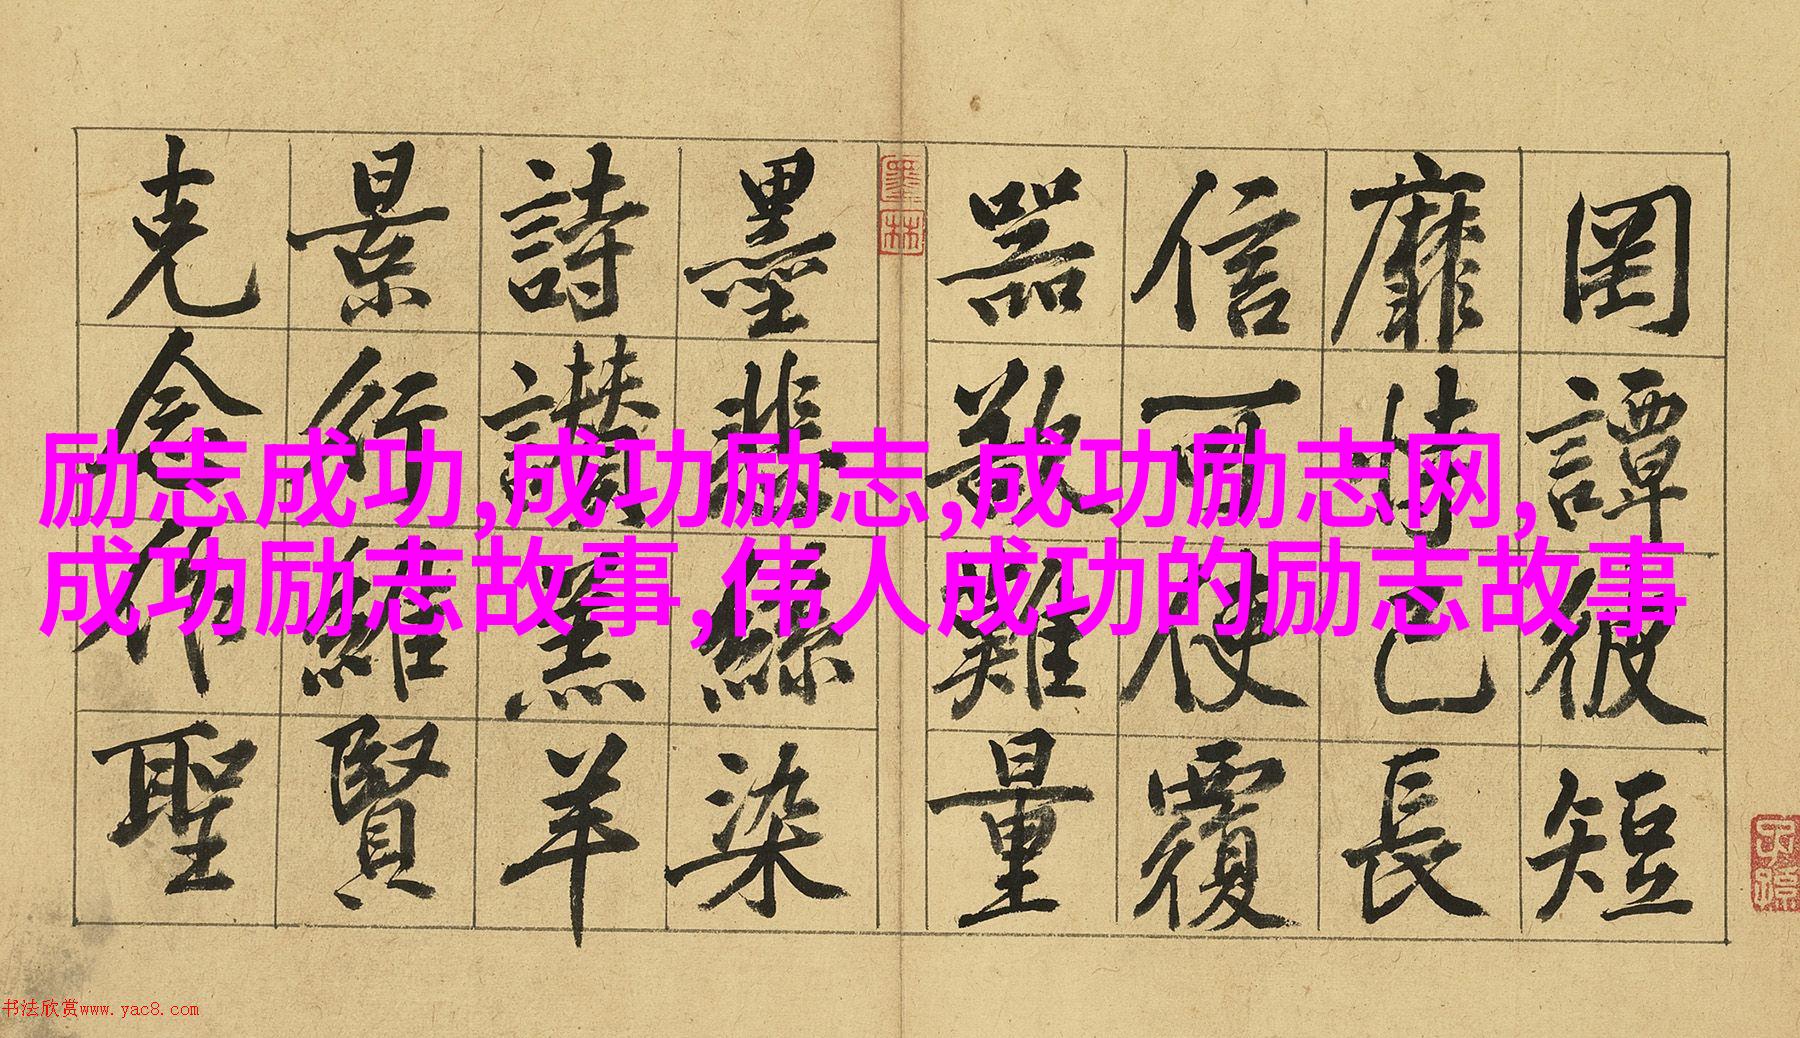 励志成功,成功励志,成功励志网,
成功励志故事,伟人成功的励志故事
罔譚彼短
靡恃己長
信可使覆
器欲難量
墨悲絲染
詩讃羔羊
景行維賢
克念作聖
墨林
书法欣赏www.yac8.com